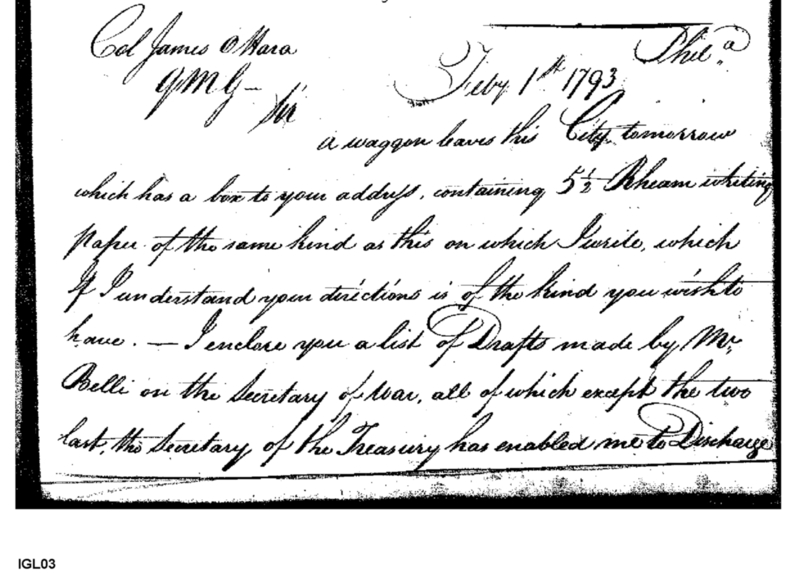 Col James O Hara
Phila
QMG—
Feby 1st 1793
Sir
a waggon leaves this City tomorrow
which has a box to your address, containing 5½ Rheam writing
paper of the same kind as this on which I write, which
If I understand your directions is of the kind you wish to
have. — I enclose you a list of Drafts made by Mr.
Belli on the Secretary of War, all of which except the two
last, the Secretary of the Treasury has enabled me to Discharge
IGL03